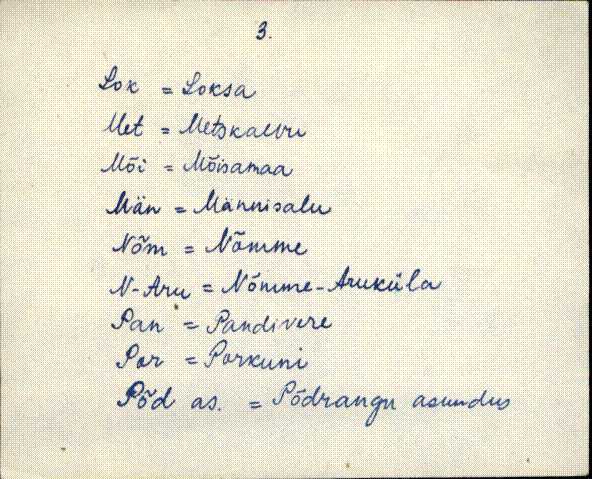 3.
Lok = Loksa
Met = Metskaevu
Mõi = Mõisamaa
Män = Männisalu
Nõm = Nõmme
N-Aru = Nõmme-Aruküla
Pan = Pandivere
Por = Porkuni
Põd as. = Põdrangu asundus